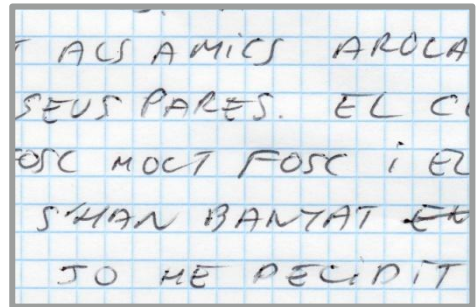 T ALS AMICS AROLA
SEUS PARES. EL CO
FOSC MOLT FOSC i EL
S'HAN BANYAT
JO HE DECIDIT